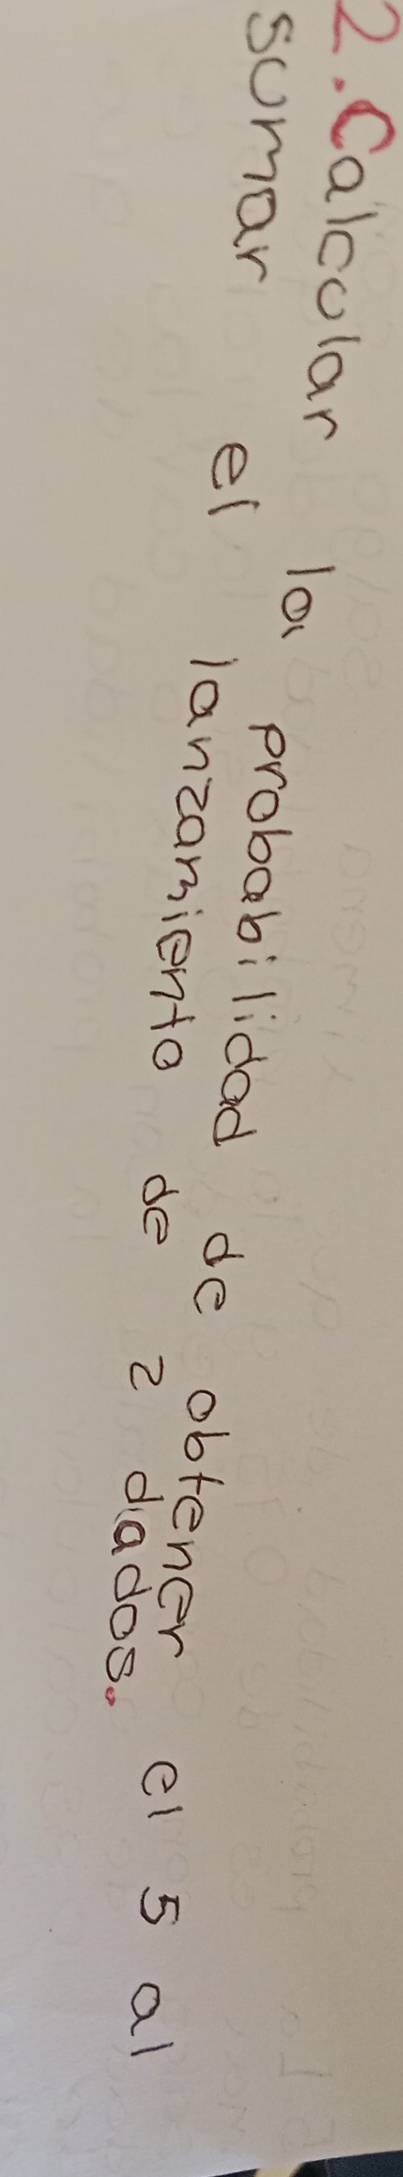 2. Calcular la probabilidad de obtener el 5 al
sumar el lanzamiento de 2 dados.